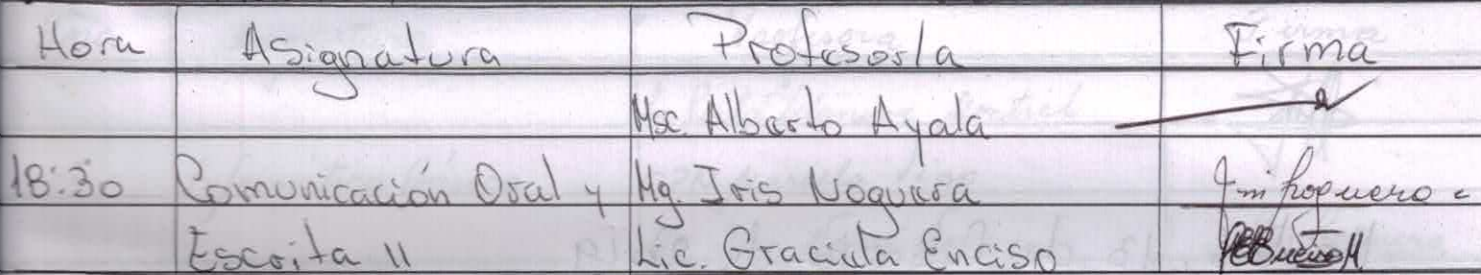 Hora Asignatura Profesor/a Firma
Msc. Alberto Ayala
18:30 Comunicación Oral y Mg. Iris Noguera
Escrita II Lic. Graciela Enciso